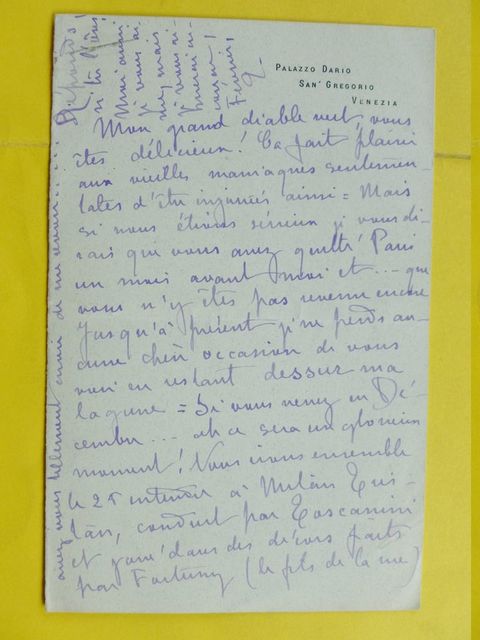 PALAZZO DARIO
SAN' GREGORIO
VENEZIA
Mon grand diable vert, vous
êtes délicieux! Ça fait plaisir
aux vieilles maniaques sentimen-
tales d'être injuriés ainsi = Mais
si nous étions sérieux je vous di-
rais que vous avez quitté Paris
un mois avant moi et ... que
vous n'y êtes pas revenu encore
Jusqu'à présent je ne perds au-
cune chère occasion de vous
voir en restant dessur ma
lagune = Si vous venez en Dé-
cembre ... ah ce sera un glorieux
moment! Nous irons ensemble
le 25 entendre à Milan Tris-
tan, conduit par Toscanini
et joué dans des décors faits
par Fortuny (le fils de la mère)
avez vous tellement envie de me revoir